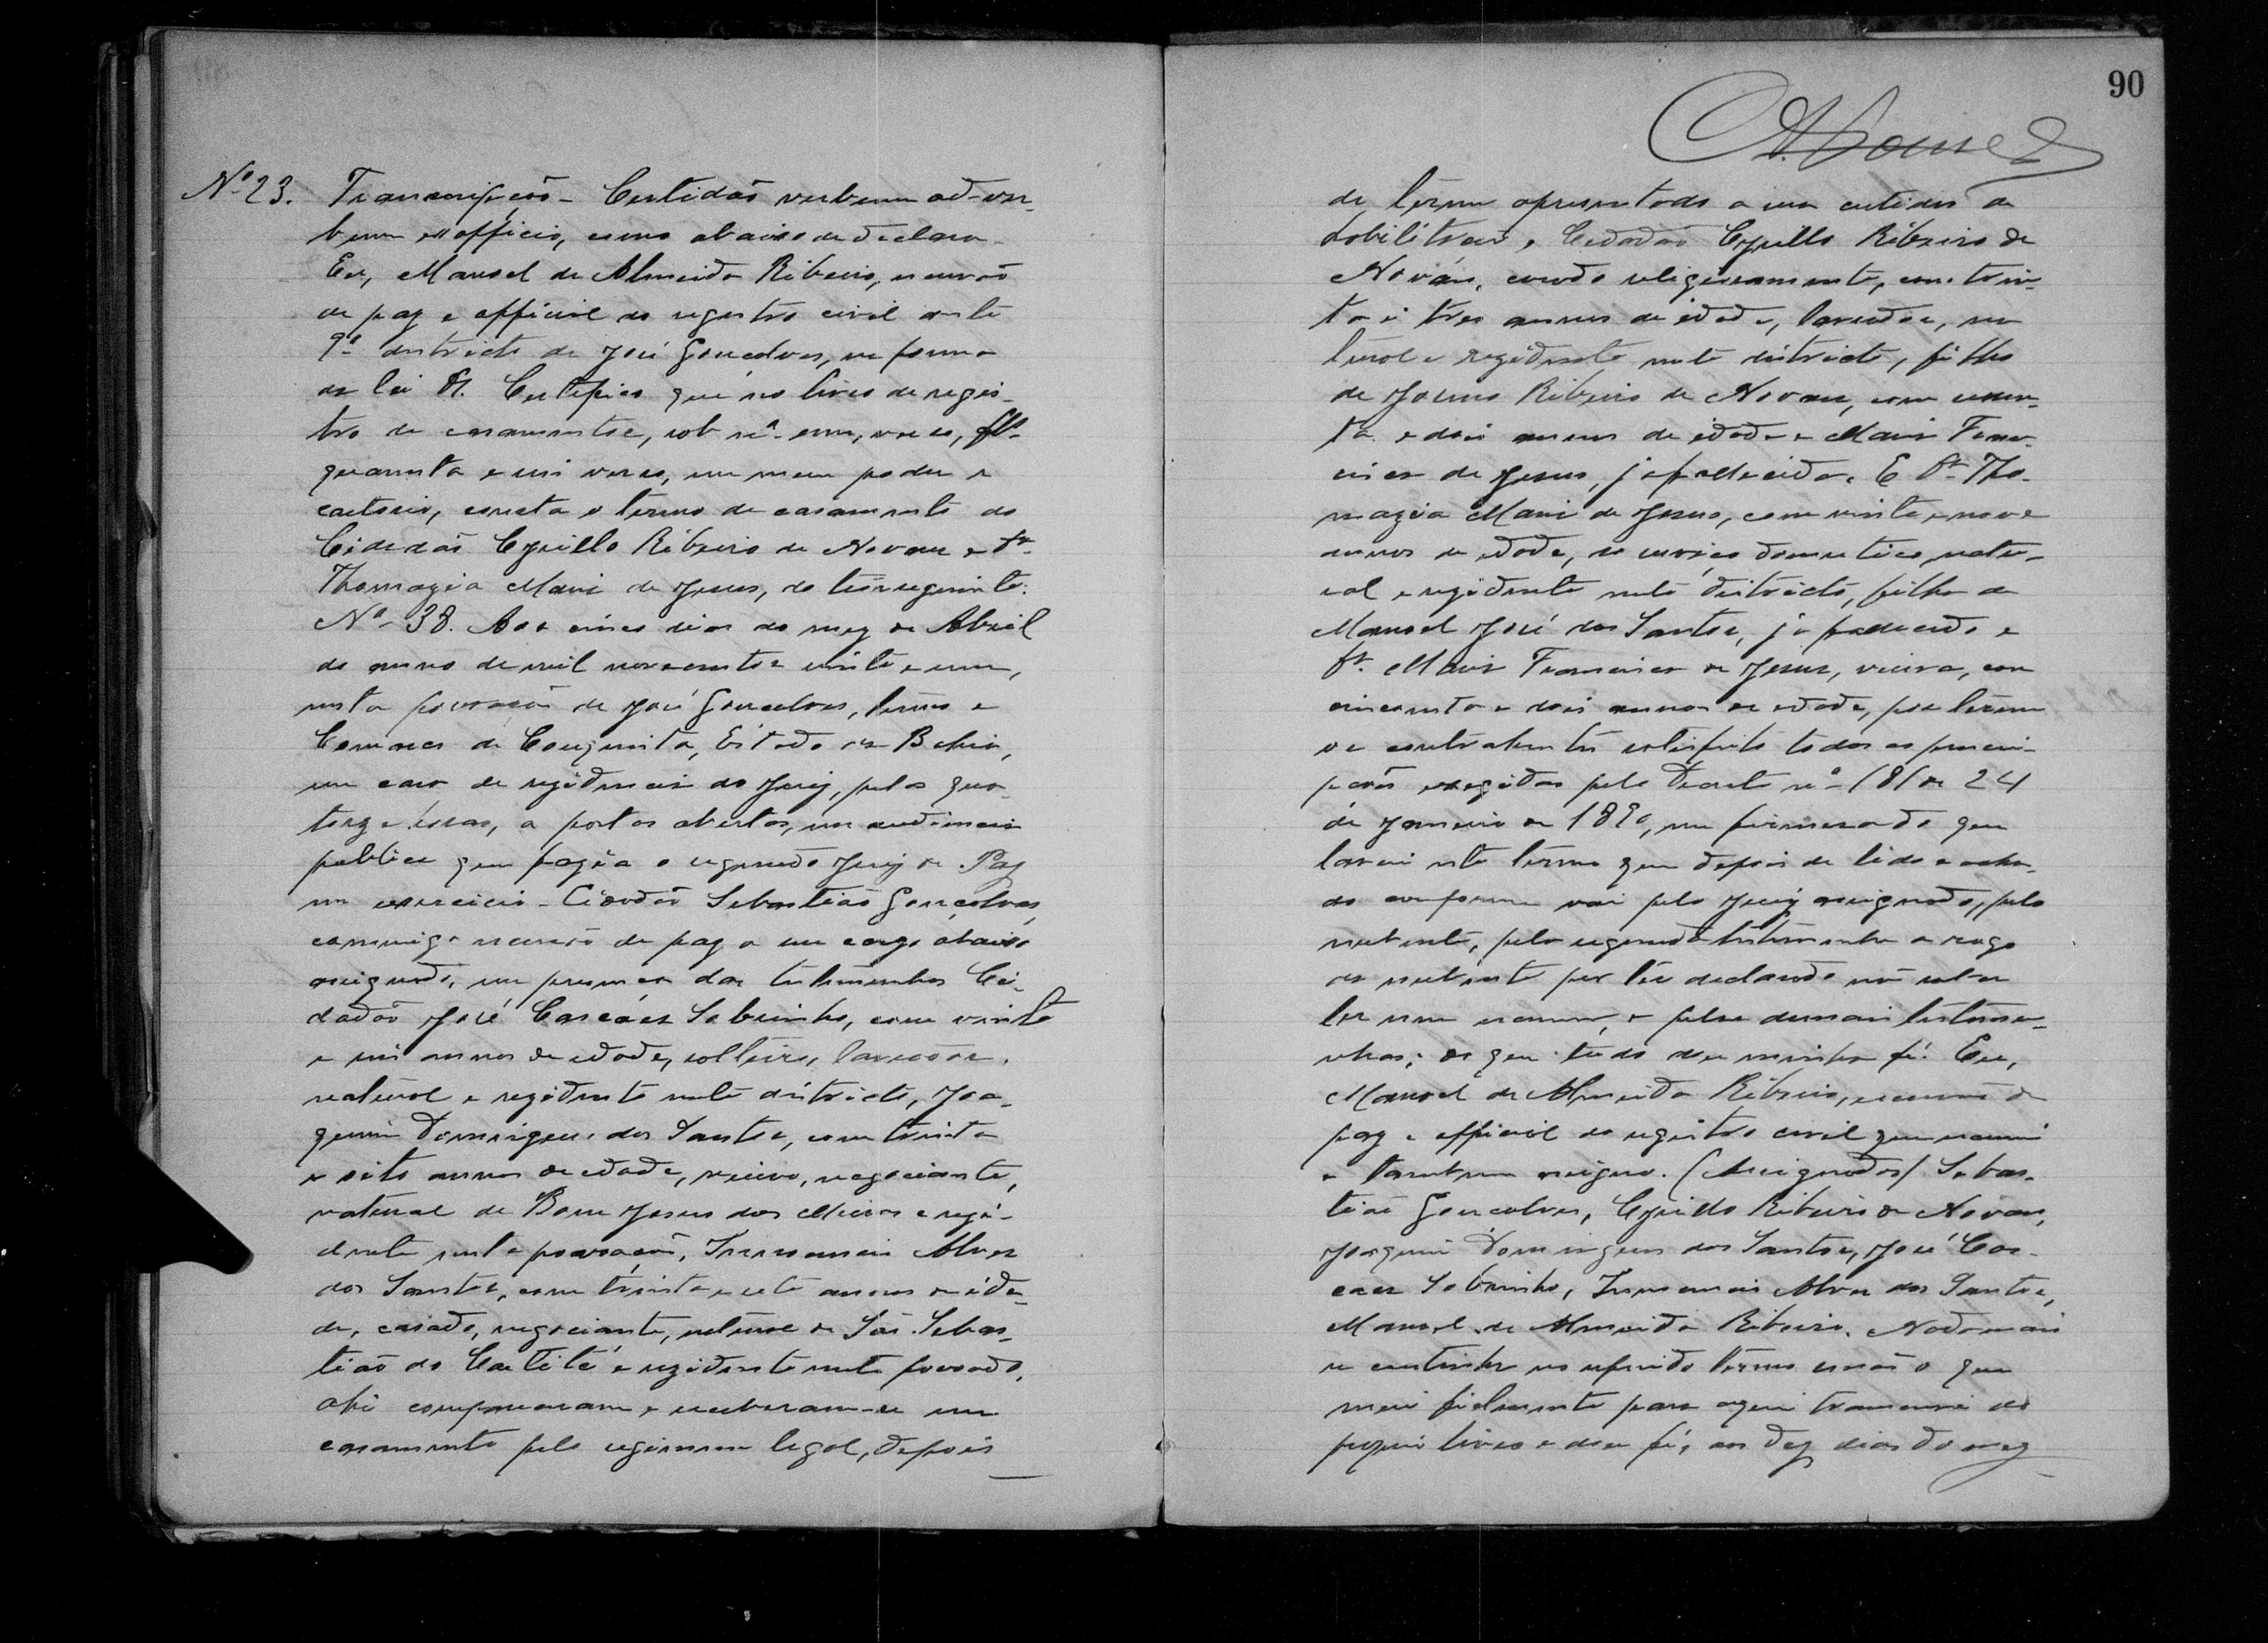 Nº 23. Transcripção - Certidão verbum ad-ver-
bum ex officio, como abaixo se declara.
Eu, Manoel de Almeida Ribeiro, escrivão
de paz e official do registro civil deste
9º districto de José Gonçalves, na forma
da lei &. Certifico que no livro de regis-
tro de casamentos, sob nº um, verso, fls.
quarenta e seis verso, em meu poder e
cartorio, consta o termo de casamento do
Cidadão Cyrillo Ribeiro de Novaes e Dª
Thomazia Maria de Jesus, do teor seguinte:
Nº 38. Aos cinco dias do mez de Abril
do anno de mil novecentos e vinte e um,
nesta povoação de José Gonçalves, termo e
Comarca de Conquista, Estado da Bahia,
em casa de rezidencia do Juiz, pelas qua-
torze horas, a portas abertas, em audiencia
publica que fazia o segundo Juiz de Paz
em exercicio - Cidadão Sebastião Gonçalves,
commigo escrivão de paz a seu cargo abaixo
assignado, em presença das testemunhas Ci-
dadão José Cascáes Sobrinho, com vinte
e seis annos de edade, solteiro, lavrador,
natural e rezidente neste districto, Joa-
quim Domingues dos Santos, com trinta
e oito annos de edade, viuvo, negociante,
natural de Bom Jesus dos Meiras e rezi-
dente nesta povoação, Alves
dos Santos, com trinta e sete annos de eda-
de, casado, negociante, natural de São Sebas-
tião do Caetité e rezidente neste povoado,
ahi compareceram e receberam-se em
casamento pelo regimem legal, depois
90
de terem apresentado a sua certidão de
habilitação, o Cidadão Cyrillo Ribeiro de
Novaes, casado religiosamente, com trin-
ta e tres annos de idade, lavrador, na-
tural e rezidente neste districto, filho
de Ribeiro de Novaes, com
e dois annos de edade e Maria Fran-
cisca de Jesus, já fallecida. E Dª Tho-
mazia Maria de Jesus, com vinte e nove
annos de edade, de serviço domestico, natu-
ral e rezidente neste districto, filha de
Manoel José dos Santos, já fallecido e
Dª Maria Francisca de Jesus, viuva, com
cincoenta e dois annos de edade, por terem
os contrahentes satisfeito todas as prescri-
pções exigidas pelo Decreto nº 181 de 24
de Janeiro de 1890, em firmeza do que
lavrei este termo que depois de lido e acha-
do conforme vai pelo Juiz assignado, pelo
nubente, pela segunda testemunha a rogo
da nubente por ter declarado não saber
ler nem escrever, e pelas demais testemu-
nhas; do que tudo dou minha fé. Eu,
Manoel de Almeida Ribeiro, escrivão de
paz e official do registro civil que escrevi
e tambem assigno. (Assignados) Sebas-
tião Gonçalves, Cyrillo Ribeiro de Novaes,
Joaquim Domingues dos Santos, José Cas-
cáes Sobrinho, Alves dos Santos,
Manoel de Almeida Ribeiro. Nada mais
se continha no referido termo senão o que
mui fielmente para aqui transcrevi do
proprio livro e dou fé, aos dez dias do mez